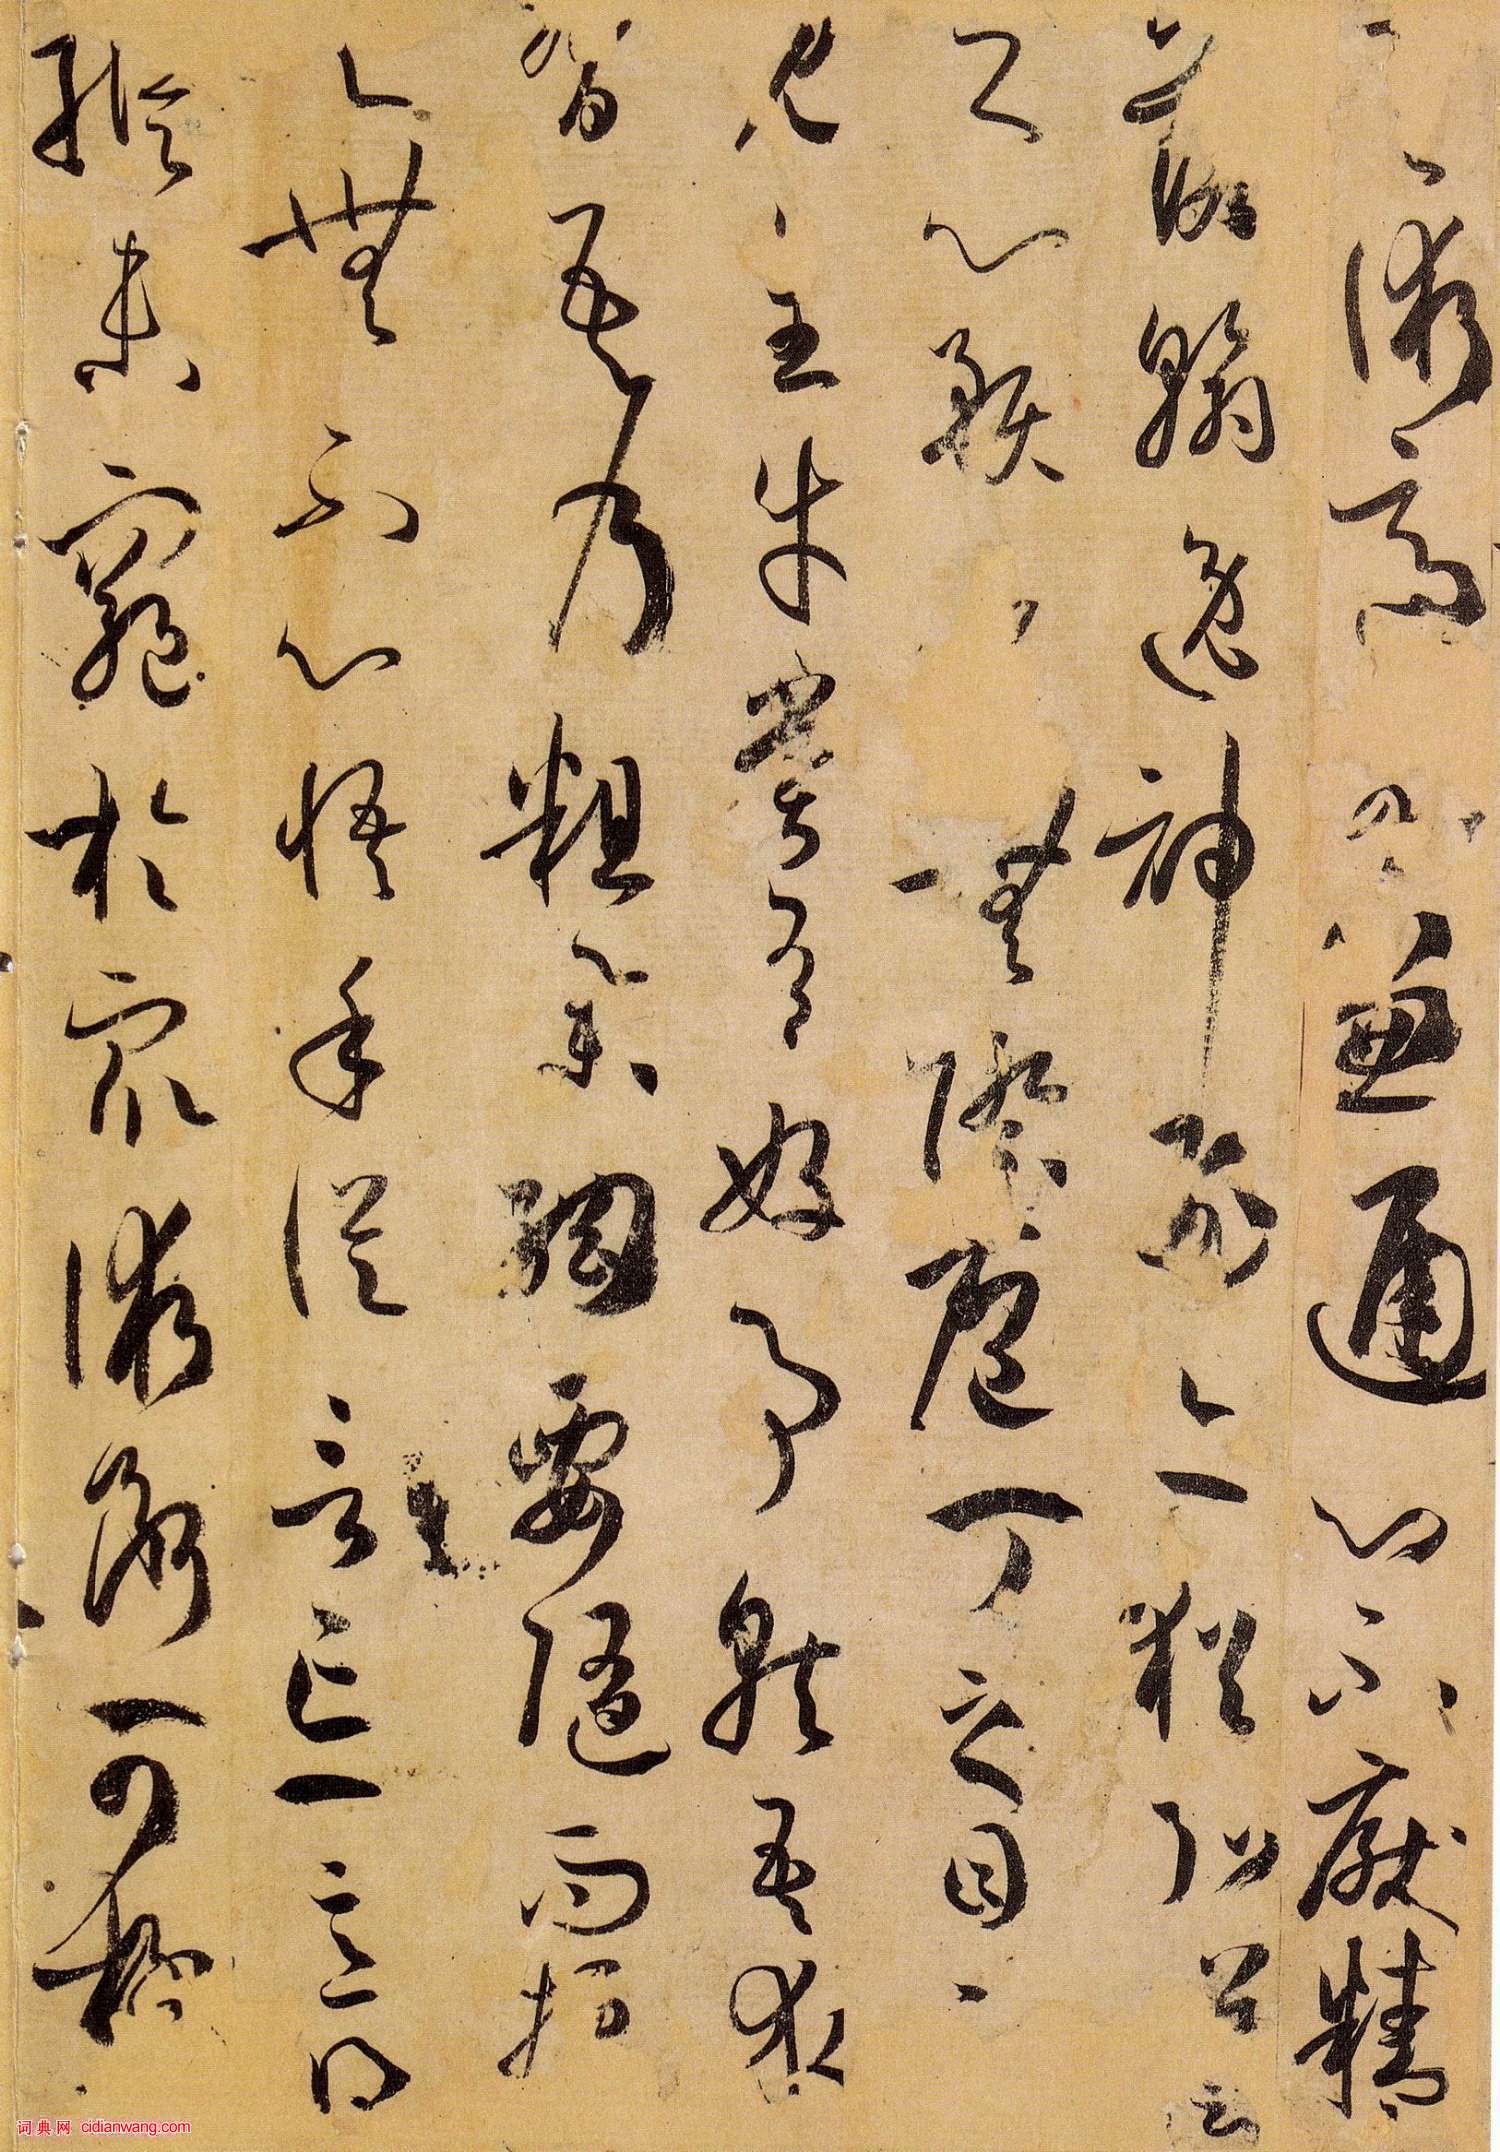 術兼通心不厭精
落翰逸神飛亦猶弘羊
之心預乎無際庖丁之目不
見全牛嘗有好事就吾求
習吾乃粗舉綱要隨而授
之無不心悟手從言忘意得
縱未窮於衆術斷可極
词典网 cidianwang.com